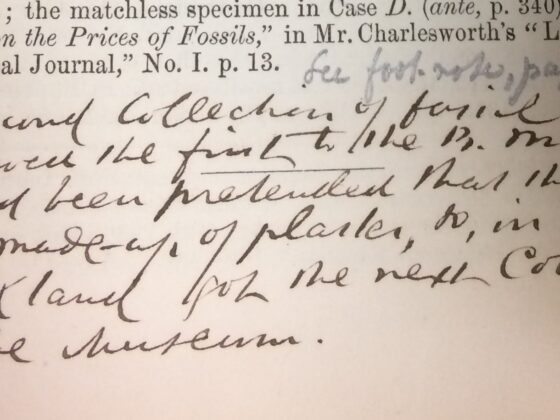 ; the matchless specimen in Case D. (ante, p. 340)
n the Prices of Fossils," in Mr. Charlesworth's "L
al Journal," No. I. p. 13.
See foot-note, pa
cond Collection of fossil
wed the first to the B. M
d been pretended that th
made-up of plaster, so, in
kland got the next Co
e Museum.